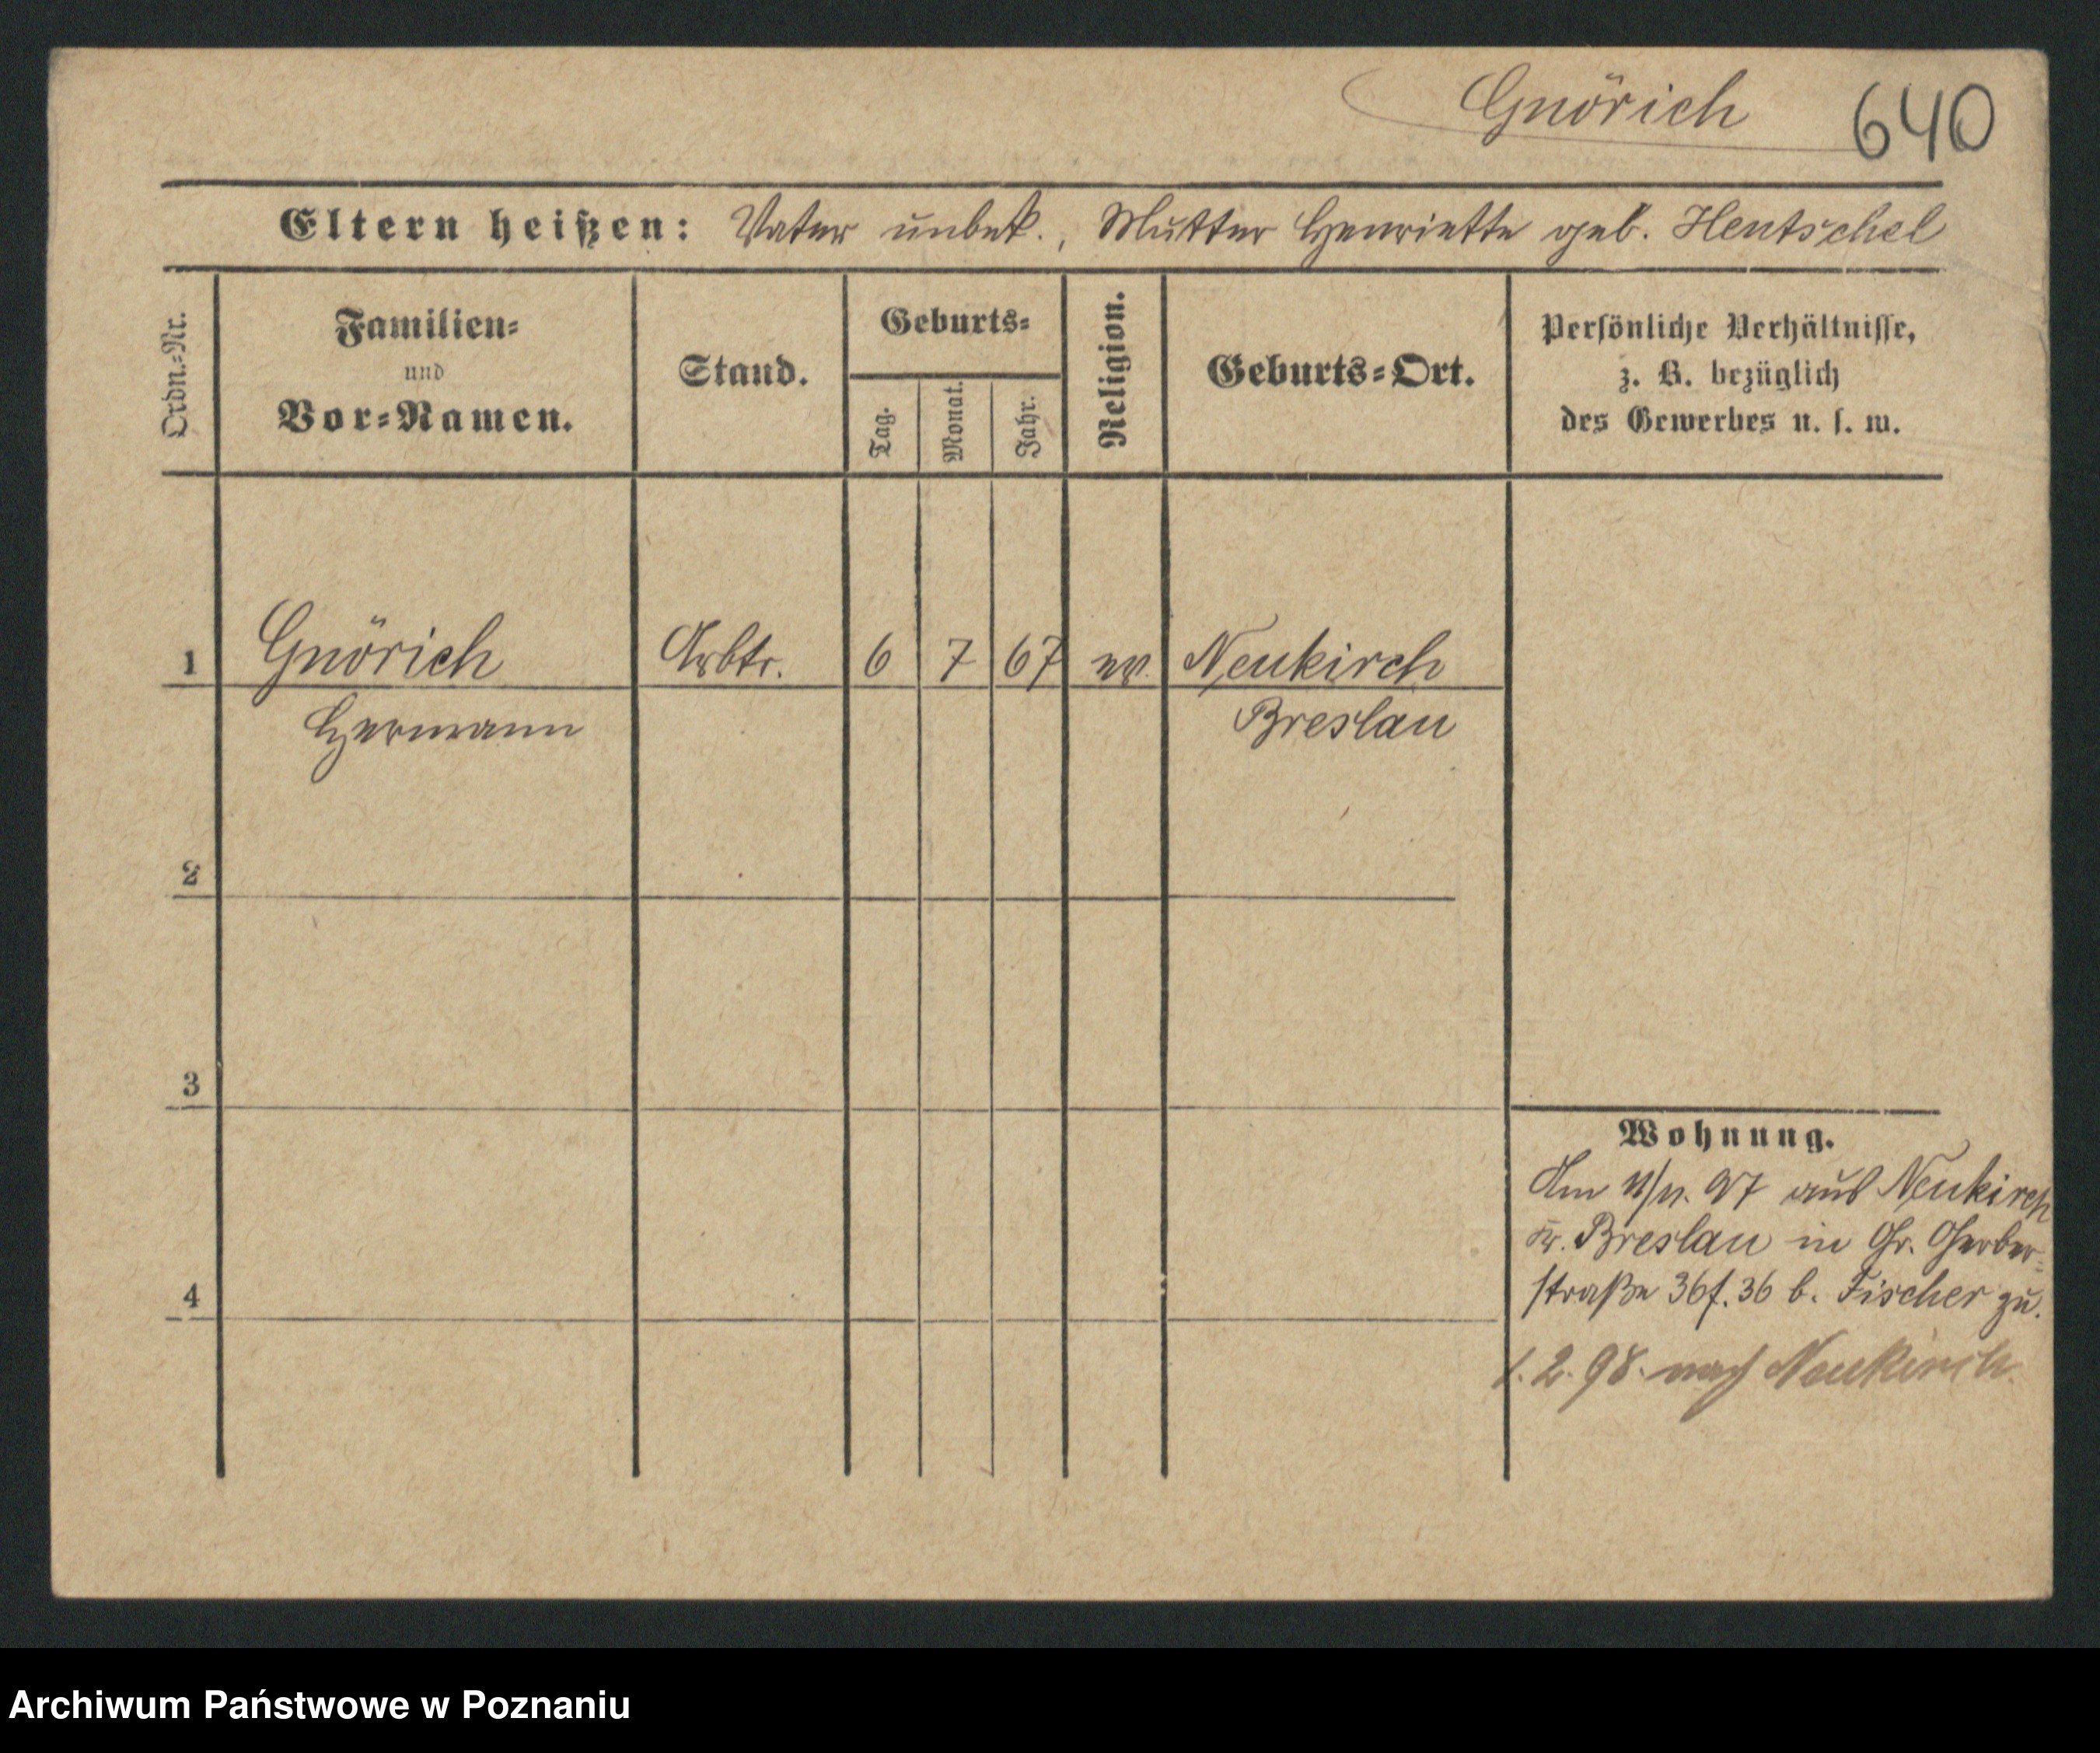 Gnörich 640
Eltern heißen: Vater unbek., Mutter Henriette geb. Hentschel
Ordn.-Nr.
Familien-
und
Vor-Namen.
Stand.
Geburts-
Tag.
Monat.
Jahr.
Religion.
Geburts-Ort.
Persönliche Verhältnisse,
z. B. bezüglich
des Gewerbes u. s. w.
1 Gnörich Arbtr. 6 7 67 ev. Neukirch
Hermann Breslau
2
3
4
Wohnung.
Am 11/11. 97 aus Neukirch
Kr. Breslau in Gr. Gerber-
straße 36 b. Fischer zu.
1.2.98. nach Neukirch.
Archiwum Państwowe w Poznaniu